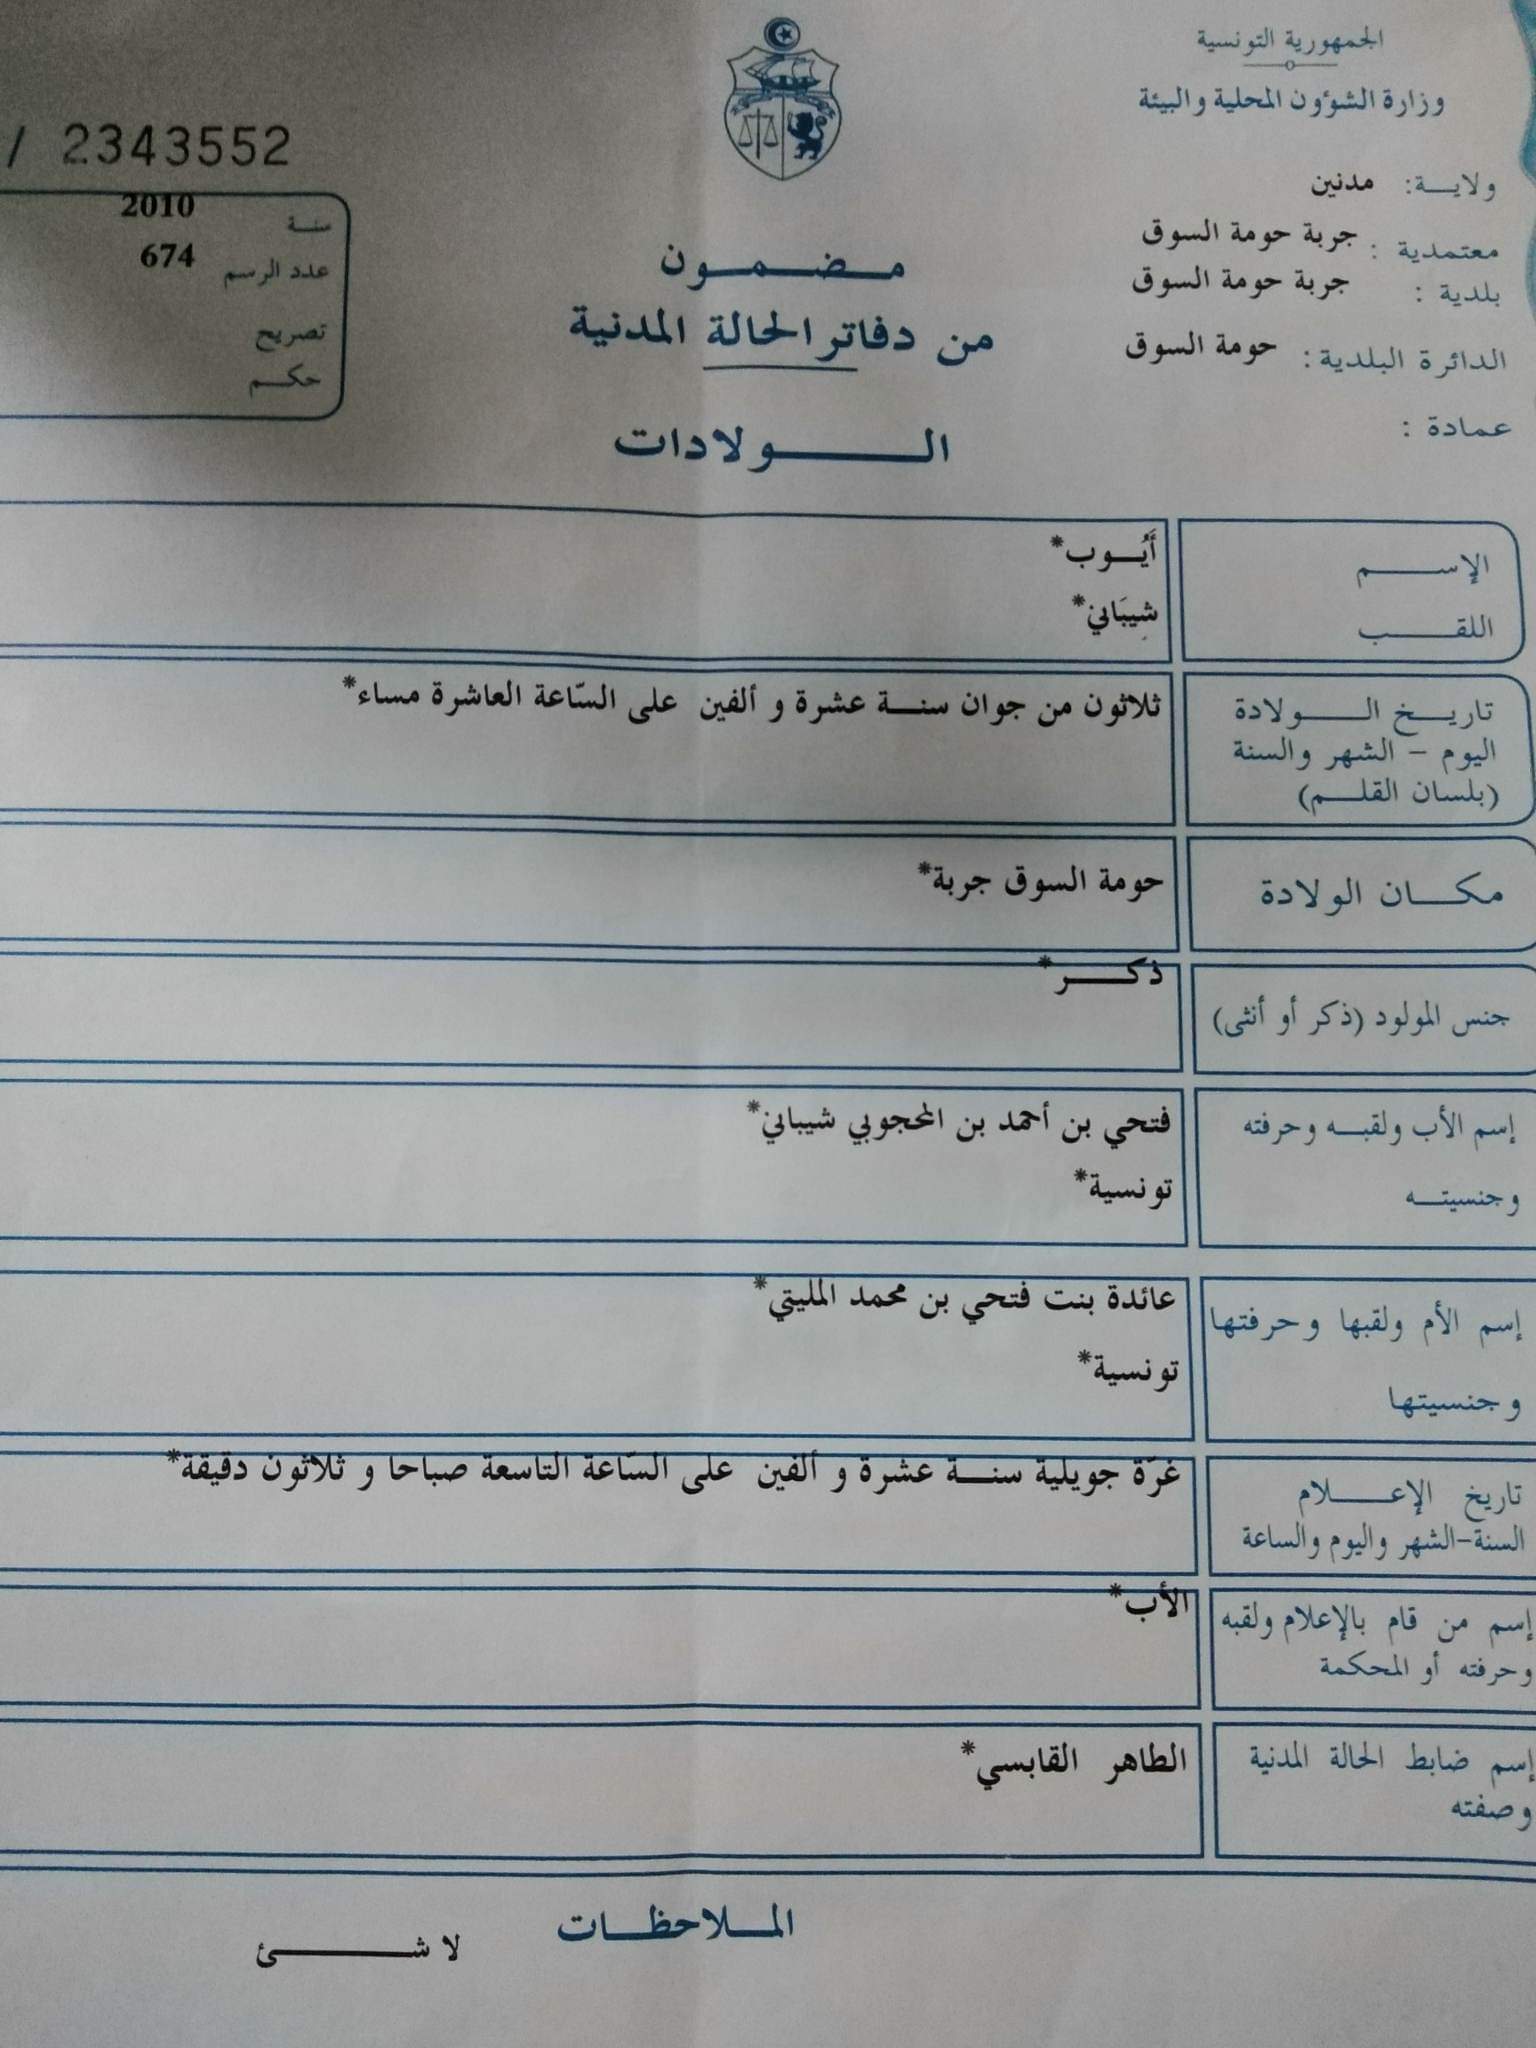 الجمهورية التونسية
وزارة الشؤون المحلية والبيئة
ولايـة: مدنين
معتمدية : جربة حومة السوق
بلدية : جربة حومة السوق
الدائرة البلدية: حومة السوق
عمادة :
/ 2343552
سنة 2010
عدد الرسم 674
تصريح
حكم
مضمون
من دفاتر الحالة المدنية
الولادات
الإسم أَيُّوب*
اللقب شِيبَاني*
تاريخ الولادة ثلاثون من جوان سنة عشرة و ألفين على السّاعة العاشرة مساء*
اليوم - الشهر والسنة
(بلسان القلم)
مكان الولادة حومة السوق جربة*
جنس المولود (ذكر أو أنثى) ذكر*
إسم الأب ولقبه وحرفته فتحي بن أحمد بن المحجوبي شيباني*
وجنسيته تونسية*
إسم الأم ولقبها وحرفتها عائدة بنت فتحي بن محمد المليتي*
وجنسيتها تونسية*
تاريخ الإعلام غرّة جويلية سنة عشرة و ألفين على السّاعة التاسعة صباحا و ثلاثون دقيقة*
السنة-الشهر واليوم والساعة
إسم من قام بالإعلام ولقبه الأب*
وحرفته أو المحكمة
إسم ضابط الحالة المدنية الطاهر القابسي*
وصفته
الملاحظات
لا شئ